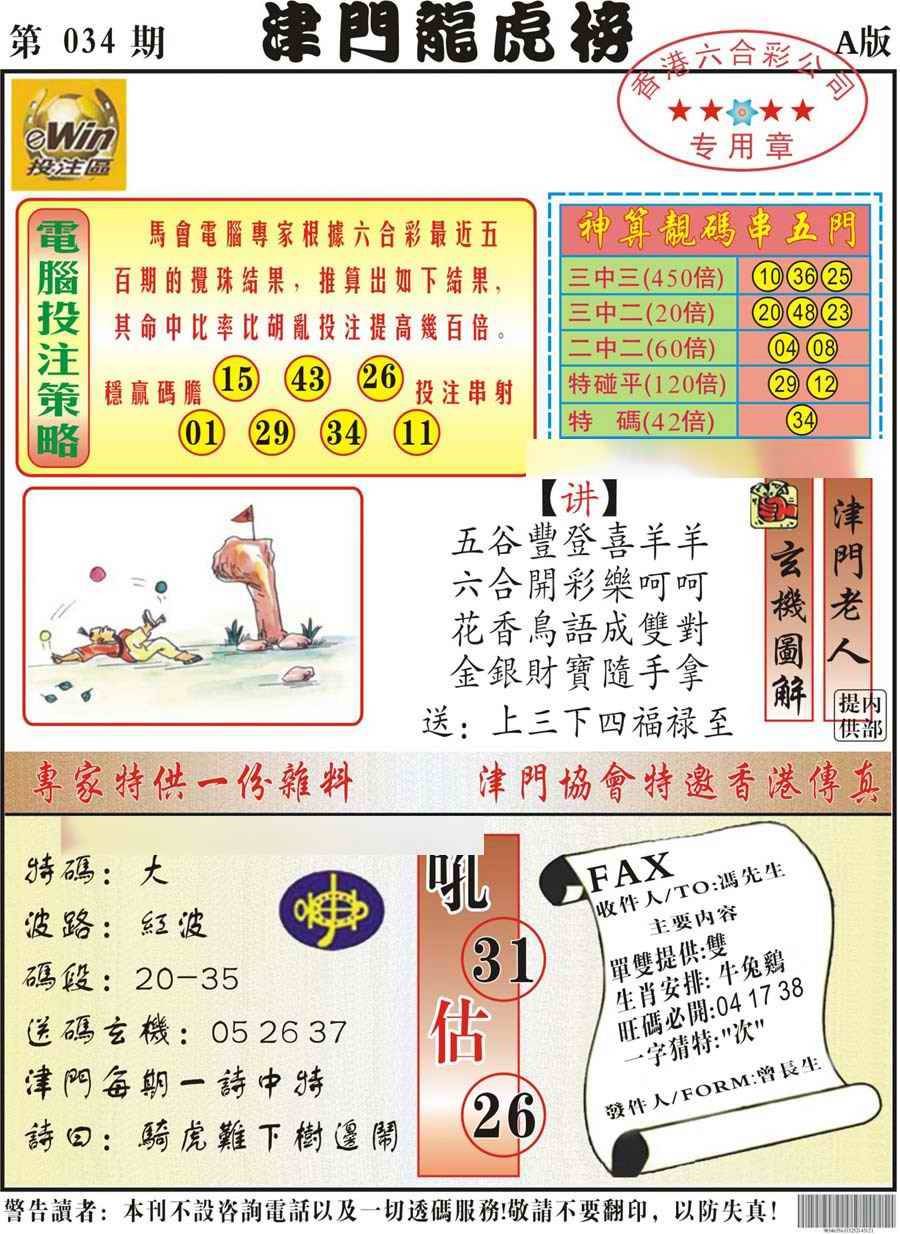 第 034 期
津門龍虎榜
A版
香港六合彩公司
专用章
eWin
投注區
電腦投注策略
馬會電腦專家根據六合彩最近五
百期的攪珠結果，推算出如下結果，
其命中比率比胡亂投注提高幾百倍。
穩贏碼膽 15 43 26 投注串射
01 29 34 11
神算靚碼串五門
三中三(450倍) 10 36 25
三中二(20倍) 20 48 23
二中二(60倍) 04 08
特碰平(120倍) 29 12
特 碼(42倍) 34
【讲】
五谷豐登喜羊羊
六合開彩樂呵呵
花香鳥語成雙對
金銀財寶隨手拿
送：上三下四福禄至
玄機圖解
津門老人
提供
内部
專家特供一份雜料
津門協會特邀香港傳真
特碼：大
波路：紅波
碼段：20-35
送碼玄機：05 26 37
津門每期一詩中特
詩曰：騎虎難下樹邊鬧
吼
31
估
26
FAX
收件人/TO:馮先生
主要内容
單雙提供:雙
生肖安排: 牛兔鷄
旺碼必開:04 17 38
一字猜特:"次"
發件人/FORM:曾長生
警告讀者：本刊不設咨詢電話以及一切透碼服務!敬請不要翻印，以防失真!